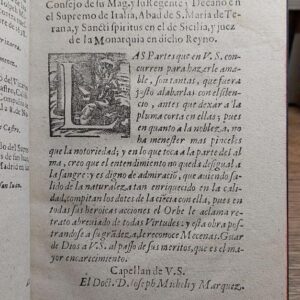 Consejo de su Mag. y su Regente, y Decano en
el Supremo de Italia, Abad de S. Maria de Te-
rana, y Sancti spiritus en el de Sicilia, y juez
de la Monarquia en dicho Reyno.
LAS Partes que en V. S. con-
curren para hazerle ama-
ble, son tantas, que fuera
justo alabarlas con el silen-
cio, antes que dexar a la
pluma corta en ellas; pues
en quanto a la nobleza, no
ha menester mas pinceles
que la notoriedad; y en lo que toca a la parte del al
ma, creo que el entendimiento no queda desigual a
la sangre: y es digno de admiraciõ, que auiendo sali-
do de la naturaleza tan enriquecido en la cali-
dad, compitan los dotes de la ciẽcia con ella; pues en
todas sus heroicas acciones el Orbe le aclama re-
trato abreviado de todas Virtudes: y esta obra pos-
trandose a su grãdeza, le reconoce Mecenas. Guar
de Dios a V. S. al passo de sus meritos, que es el ma-
yor encarecimiento.
Capellan de V. S.
El Doct. D. Joseph Micheli y Marquez.
Castro.
San Iuan.